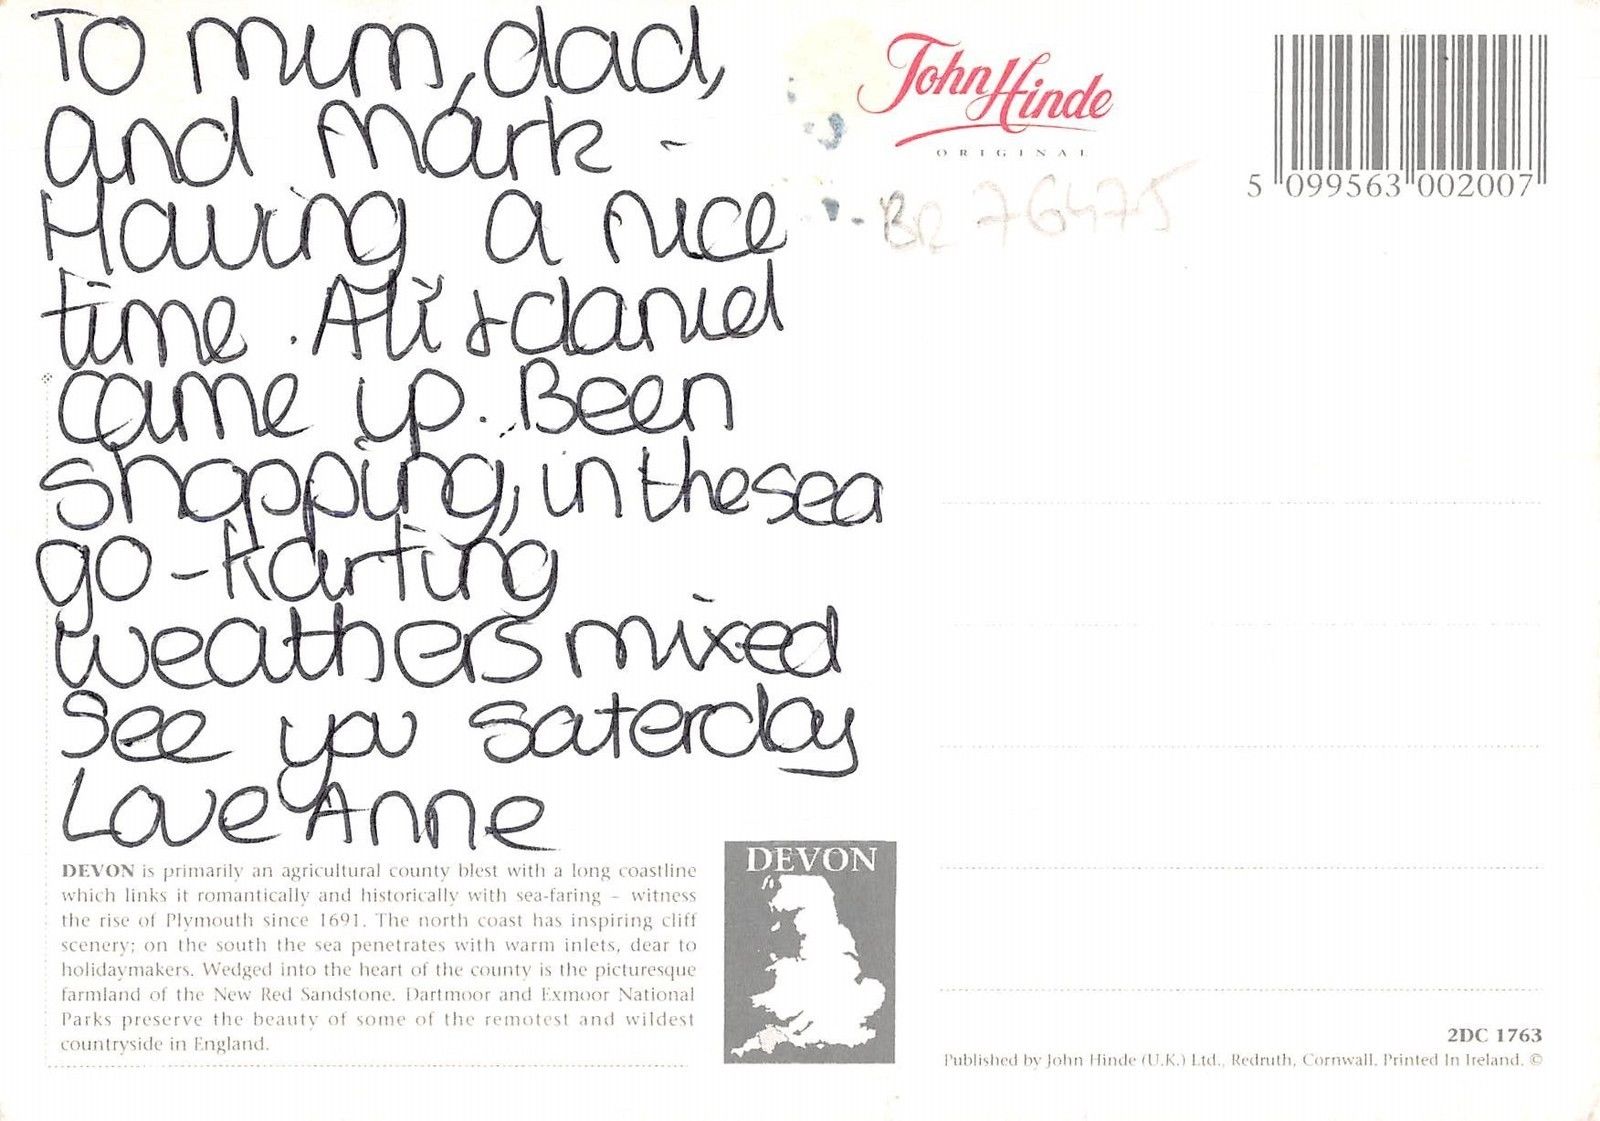 To mum, dad,
and mark -
Having a nice
time. Ali & daniel
came up. Been
shopping, in the sea
go-karting
weathers mixed
See you saterday
Love Anne
DEVON is primarily an agricultural county blest with a long coastline
which links it romantically and historically with sea-faring – witness
the rise of Plymouth since 1691. The north coast has inspiring cliff
scenery; on the south the sea penetrates with warm inlets, dear to
holidaymakers. Wedged into the heart of the county is the picturesque
farmland of the New Red Sandstone. Dartmoor and Exmoor National
Parks preserve the beauty of some of the remotest and wildest
countryside in England.
DEVON
John Hinde
ORIGINAL
BR 76475
5 099563 002007
2DC 1763
Published by John Hinde (U.K.) Ltd., Redruth, Cornwall. Printed In Ireland. ©